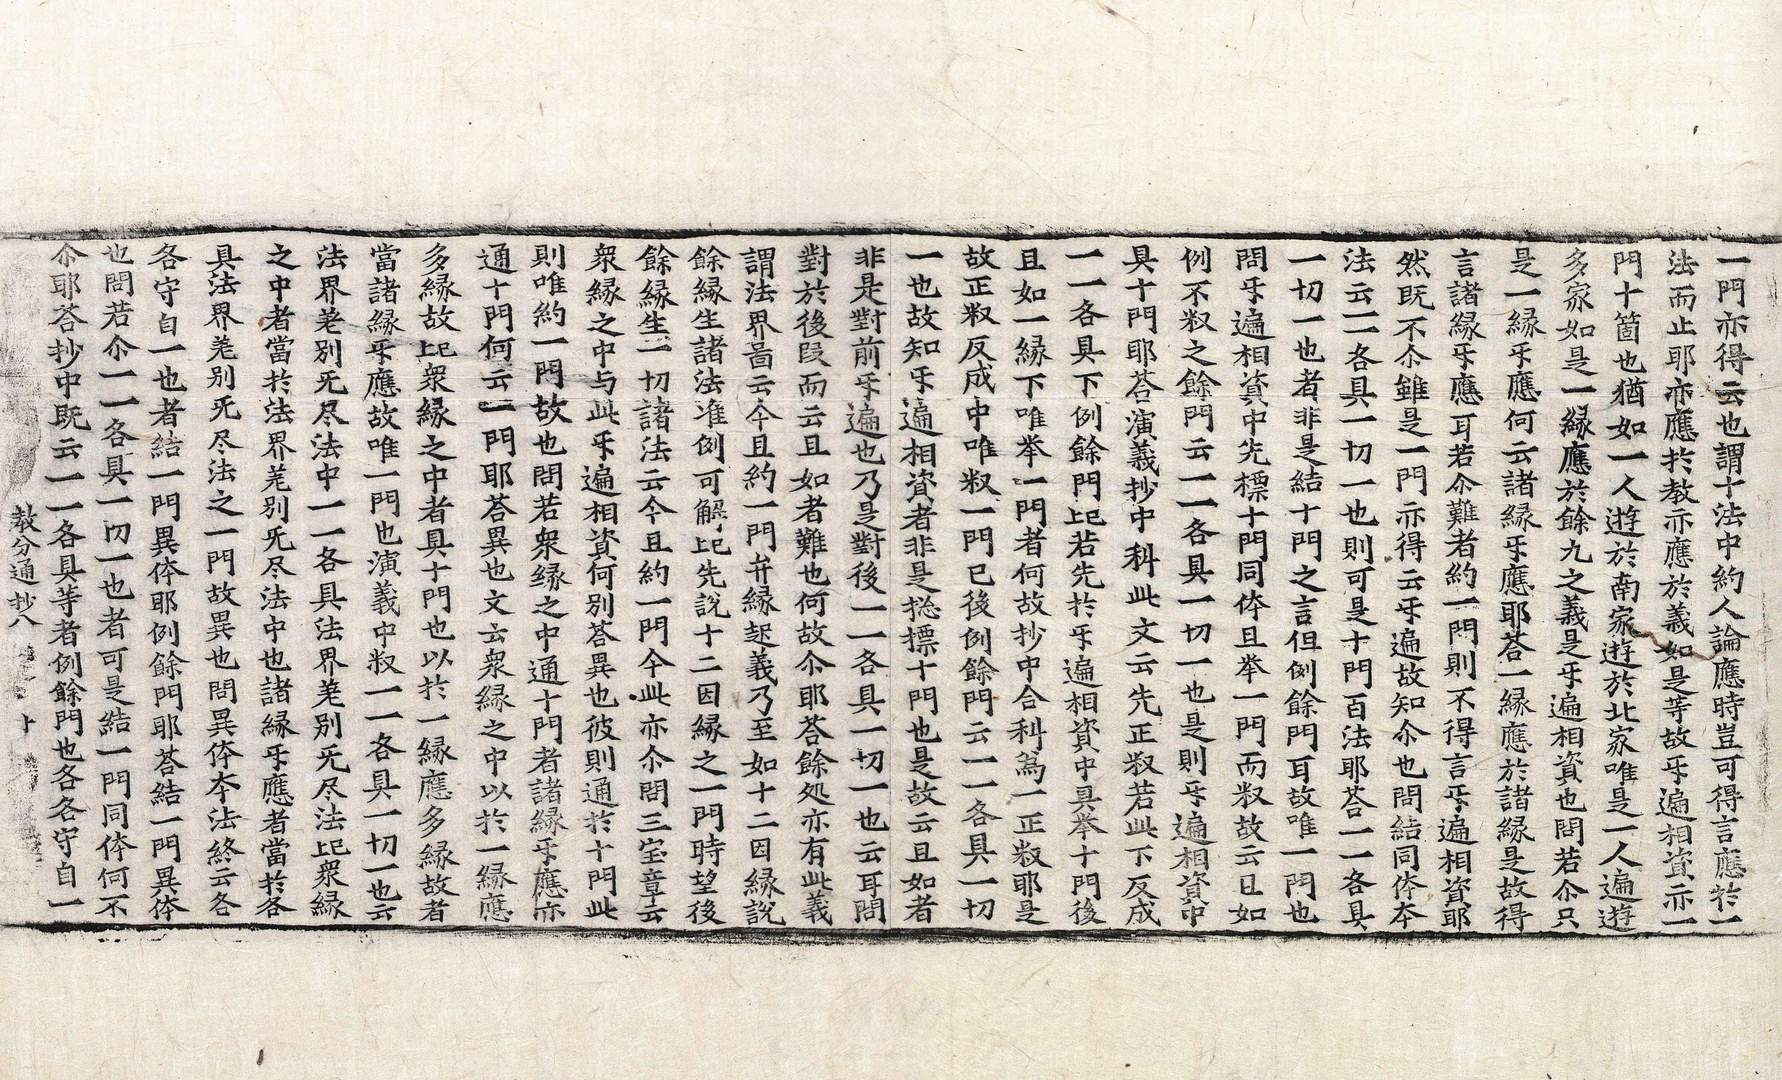 一門亦得云也謂十法中約人論應時豈可得言應於一
法而止耶亦應於教亦應於義如是等故乎遍相資亦一
門十箇也猶如一人遊於南家遊於北家唯是一人遍遊
多家如是一縁應於餘九之義是乎遍相資也問若尒只
是一縁乎應何云諸縁乎應耶荅一縁應於諸縁是故得
言諸縁乎應耳若尒難者約一門則不得言乎遍相資耶
然既不尒雖是一門亦得云乎遍故知尒也問結同体夲
法云一一各具一切一也則可是十門百法耶荅一一各具
一切一也者非是結十門之言但例餘門耳故唯一門也
問乎遍相資中先標十門同体且举一門而㪽故云且如
例不㪽之餘門云一一各具一切一也是則乎遍相資中
具十門耶荅演義抄中科此文云先正㪽若此下反成
一一各具下例餘門㐆若先於乎遍相資中具举十門後
且如一縁下唯举一門者何故抄中合科為一正㪽耶是
故正㪽反成中唯㪽一門已後例餘門云一一各具一切
一也故知乎遍相資者非是㧾標十門也是故云且如者
非是對前乎遍也乃是對後一一各具一切一也云耳問
對於後段而云且如者難也何故尒耶荅餘処亦有此義
謂法界啚云今且約一門弁縁起義乃至如十二因縁說
餘縁生諸法准例可解㐆先說十二因縁之一門時望後
餘縁生一切諸法云今且約一門今此亦尒問三宝章云
衆縁之中与此乎遍相資何別荅異也彼則通於十門此
則唯約一門故也問若衆縁之中通十門者諸縁乎應亦
通十門何云一門耶荅異也文云衆縁之中以於一縁應
多縁故㐆衆縁之中者具十門也以於一縁應多縁故者
當諸縁乎應故唯一門也演義中㪽一一各具一切一也云
法界差別旡尽法中一一各具法界差別旡尽法㐆衆縁
之中者當於法界差別旡尽法中也諸縁乎應者當於各
具法界差別旡尽法之一門故異也問異体夲法終云各
各守自一也者結一門異体耶例餘門耶荅結一門異体
也問若尒一一各具一切一也者可是結一門同体何不
尒耶荅抄中既云一一各具等者例餘門也各各守自一
教分通抄八